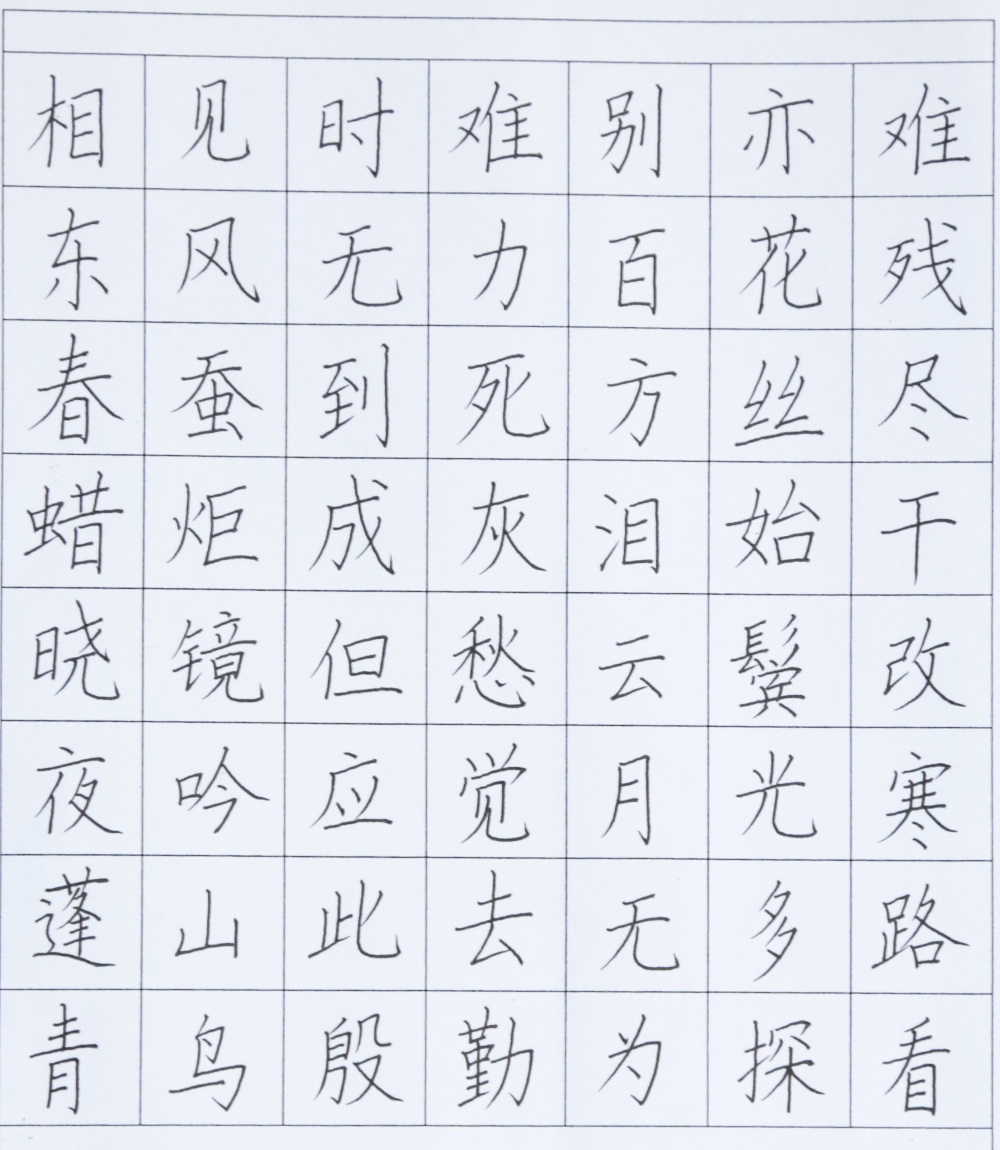 相见时难别亦难
东风无力百花残
春蚕到死方丝尽
蜡炬成灰泪始干
晓镜但愁云鬓改
夜吟应觉月光寒
蓬山此去无多路
青鸟殷勤为探看